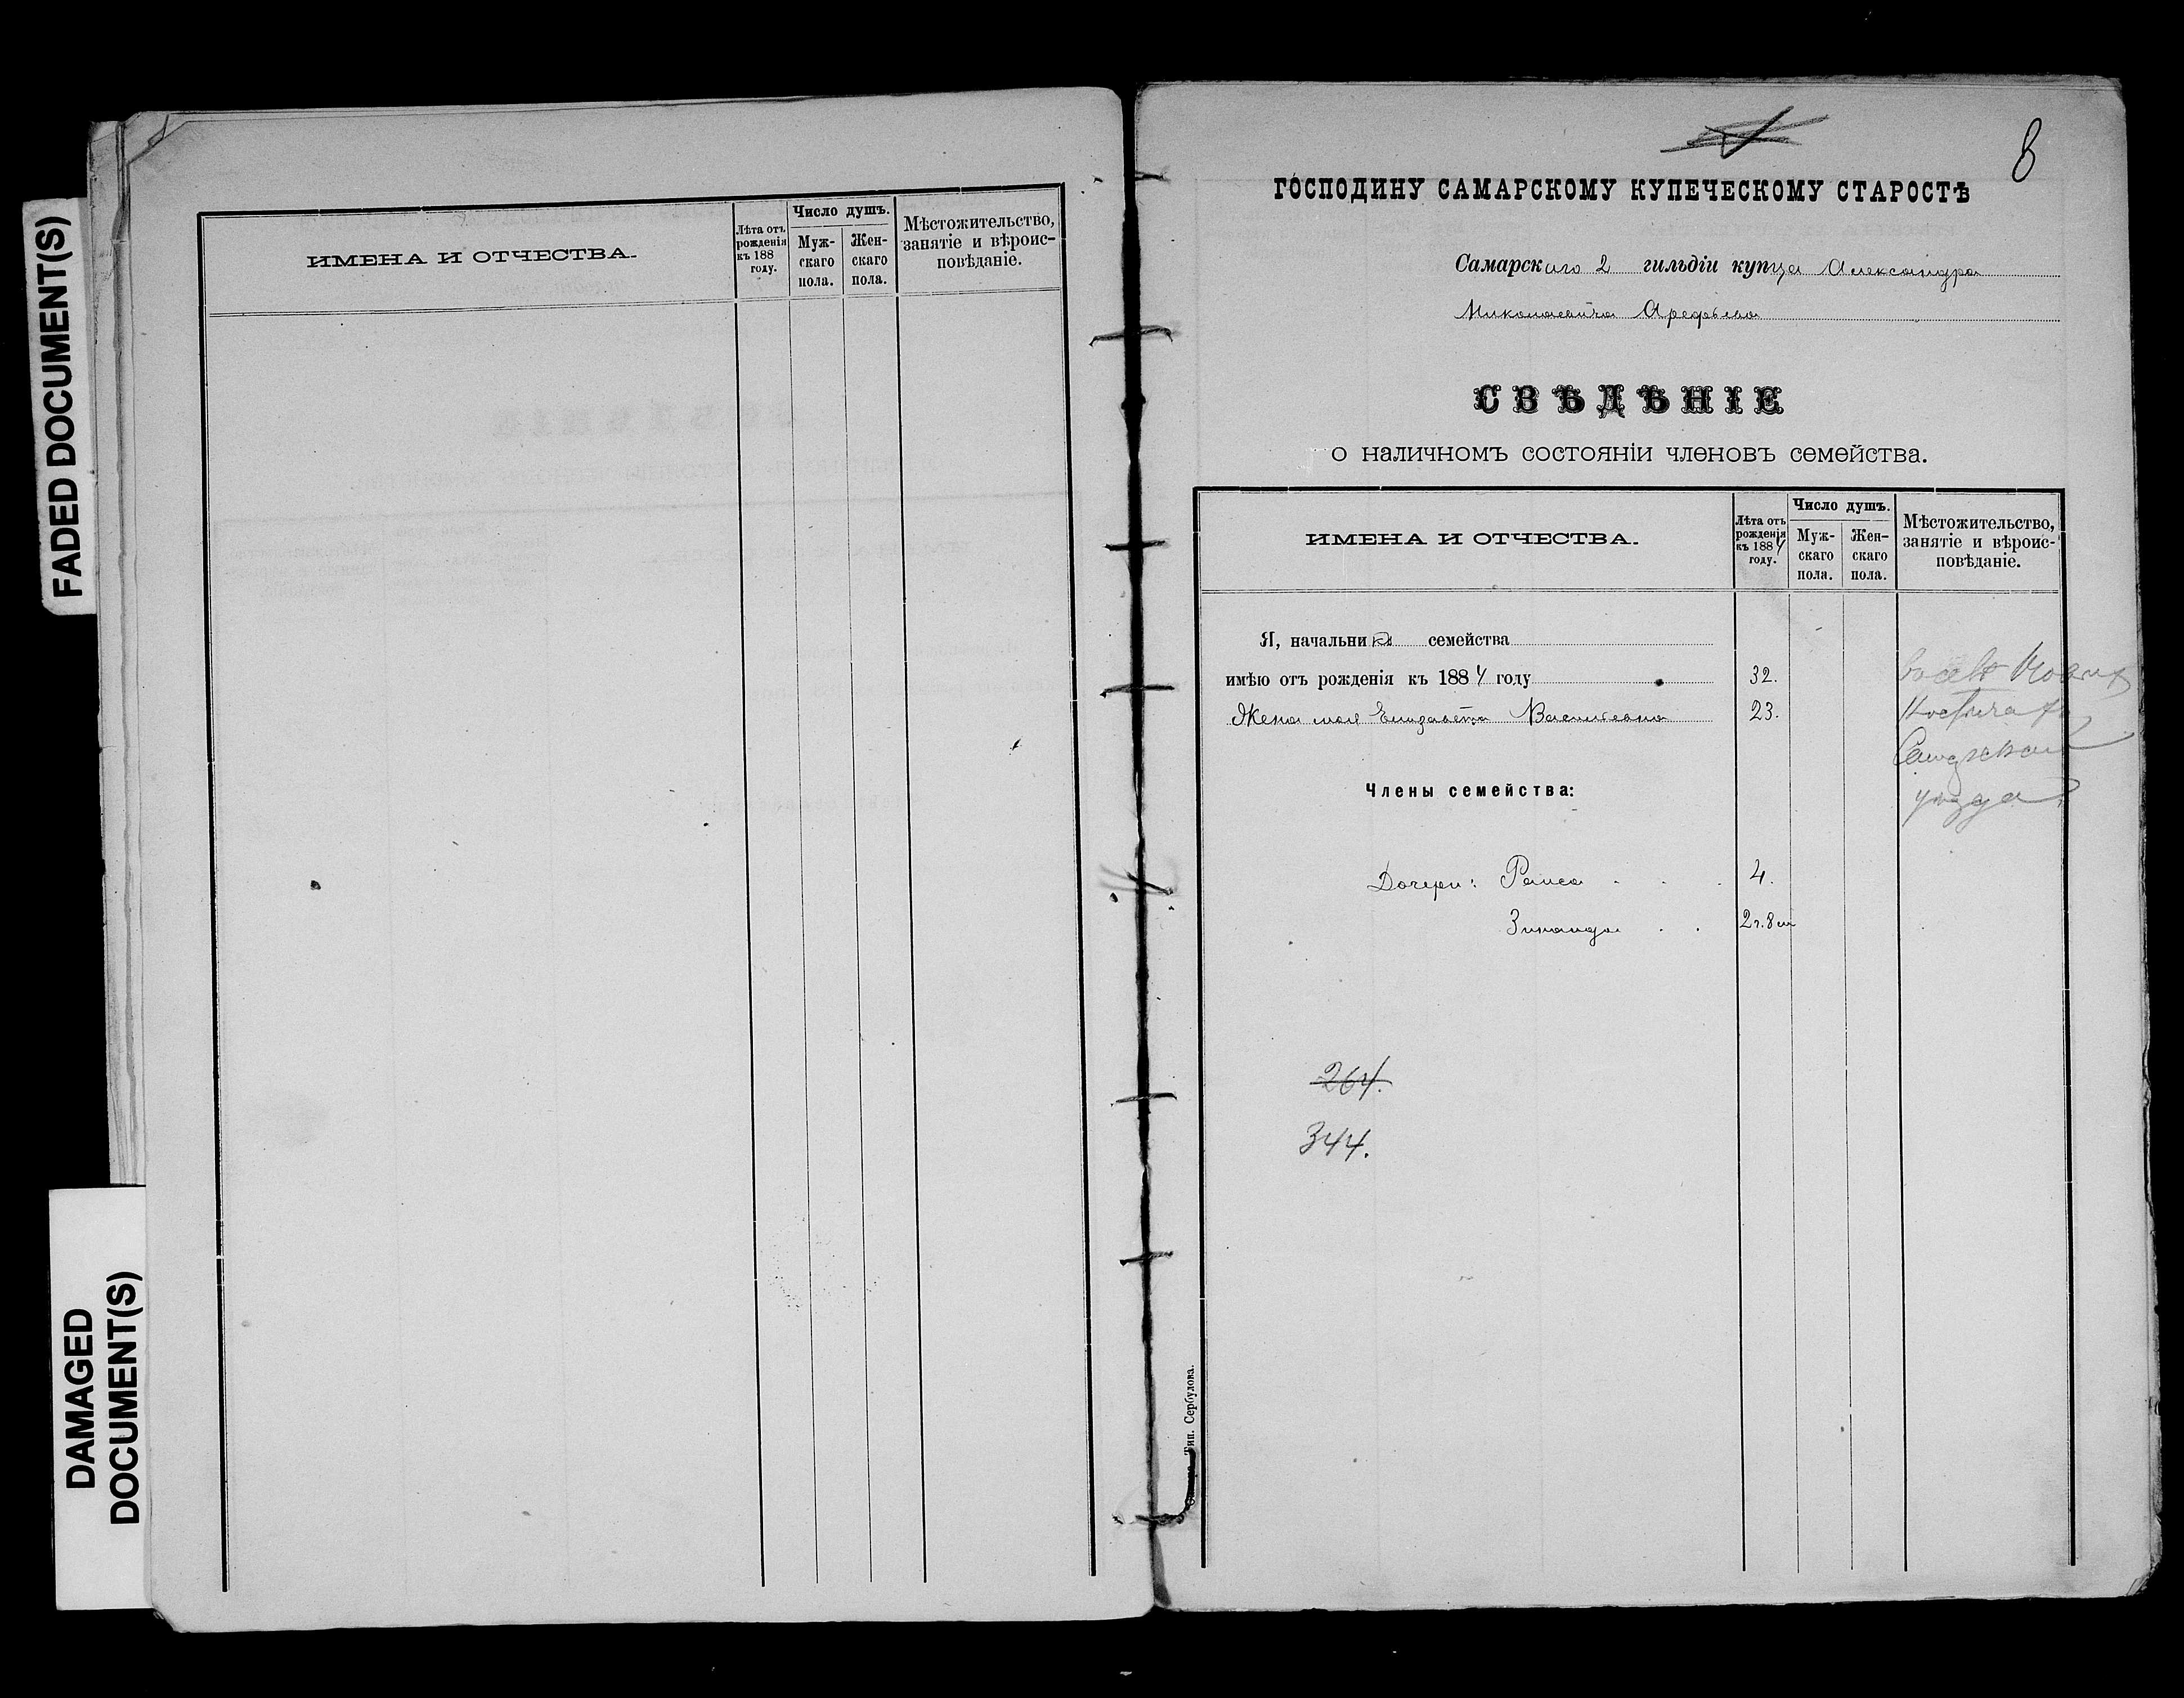 FADED DOCUMENT(S)
DAMAGED
DOCUMENT(S)
ИМЕНА И ОТЧЕСТВА.
Лѣта отъ
рожденія
къ 188
году.
Число душъ.
Муж-
скаго
пола.
Жен-
скаго
пола.
Мѣстожительство,
занятіе и вѣроис-
повѣданіе.
8
ГОСПОДИНУ САМАРСКОМУ КУПЕЧЕСКОМУ СТАРОСТѢ
Самарскаго 2 гильдіи купца Александра
Николаевича Арефьева
СВѢДѢНІЕ
о наличномъ состояніи членовъ семейства.
ИМЕНА И ОТЧЕСТВА.
Лѣта отъ
рожденія
къ 1884
году.
Число душъ.
Муж-
скаго
пола.
Жен-
скаго
пола.
Мѣстожительство,
занятіе и вѣроис-
повѣданіе.
Я, начальникъ семейства
имѣю отъ рожденія къ 1884 году 32.
Жена моя Елизавета Васильевна 23.
Самарскаго
уѣзда
Члены семейства:
Дочери: Раиса 4.
Зинаида 2 г. 8 м
264.
344.
Самара. Тип. Сербулова.